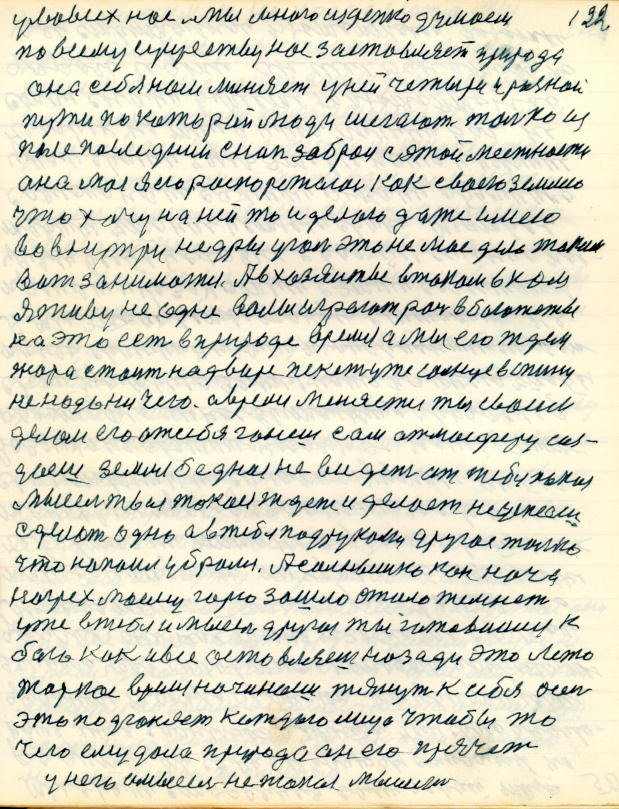 122
у во всех нас. Мы много и крепко думаем
по всему существу нас заставляет природа
она себя нам меняет у ней четыри
пути по которой люди шегают только из
поле последний сноп забрал с этой местности
она моя я его распорежался как своею землею
что хочу на ней то и делаю даже имею
во внутри недры угол это не мае дело таким
вот заниматся. А в хозяйстве в таком в ком
я живу не одне волы играют роч в богатстве
ка это ест в природе время а мы его ждем
жара стоит на дворе пекет уже сонце в спину
не надо ни чего. а время меняется ты своем
делом его от себя гониш сам атмосферу соз-
даеш земля бедная не видет от тебя никак
мысел твоя такая ждет и делает не успееш
сделат одно а в тебя под руками другое толко
что напаил убрали. А солнышко как на
грех моему гаю зашло стало темнет
уже в тебя и мысел другая ты готовишся к
бою как и все оставляеш назади это лето
жаркое время начинаеш тянут к себя осен
это подгоняет каждого лица чтобы то
чего ему дала природа он его прячет
у него мысел не такая мыслит